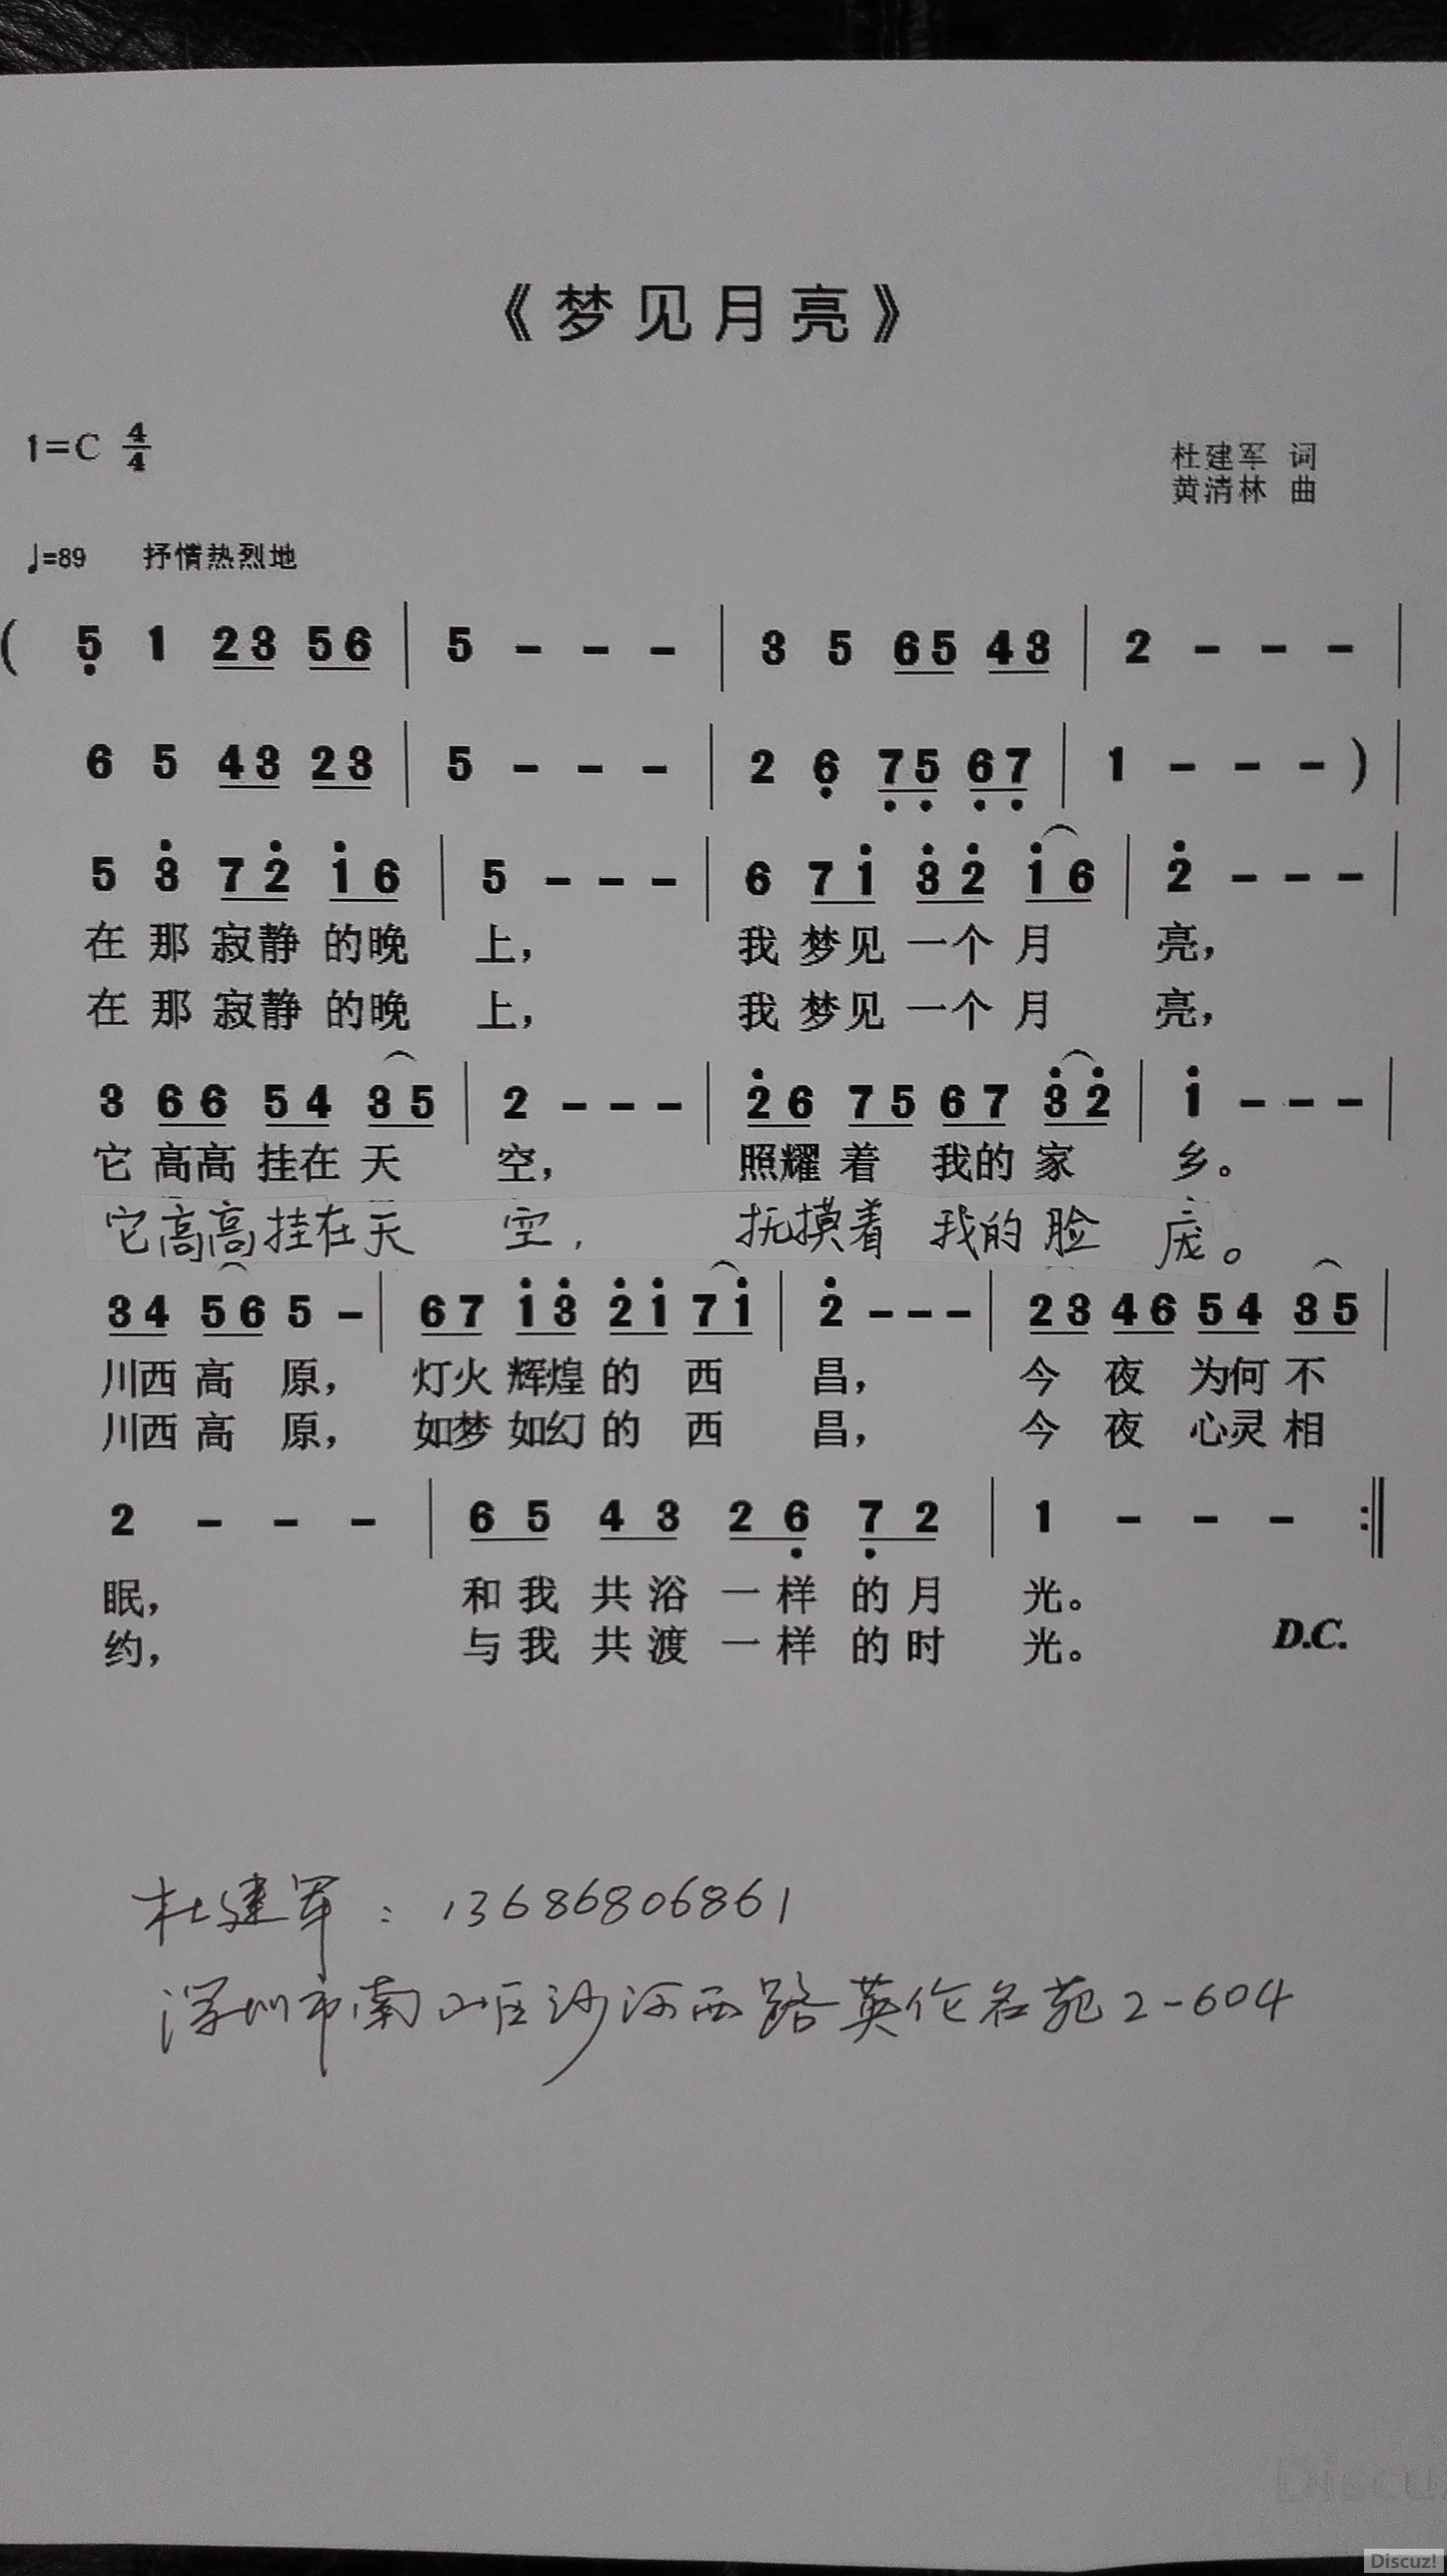 《梦见月亮》
1=C 4/4
杜建军 词
黄清林 曲
♩=89 抒情热烈地
( 5̣ 1 2 3 5 6 | 5 - - - | 3 5 6 5 4 3 | 2 - - - |
6 5 4 3 2 3 | 5 - - - | 2 6̣ 7̣ 5̣ 6̣ 7̣ | 1 - - - ) |
5 3̇ 7 2̇ 1̇ 6 | 5 - - - | 6 7 1̇ 3̇ 2̇ 1̇ 6 | 2̇ - - - |
在那寂静的晚 上， 我梦见一个月 亮，
在那寂静的晚 上， 我梦见一个月 亮，
3 6 6 5 4 3 5 | 2 - - - | 2̇ 6 7 5 6 7 3̇ 2̇ | 1̇ - - - |
它高高挂在天 空， 照耀着 我的家 乡。
它高高挂在天 空， 抚摸着 我的脸 庞。
3 4 5 6 5 - | 6 7 1̇ 3̇ 2̇ 1̇ 7 1̇ | 2̇ - - - | 2 3 4 6 5 4 3 5 |
川西高 原， 灯火辉煌的 西 昌， 今 夜 为何不
川西高 原， 如梦如幻的 西 昌， 今 夜 心灵相
2 - - - | 6 5 4 3 2 6̣ 7̣ 2 | 1 - - - :‖
眠， 和我共浴一样的月 光。
约， 与我共渡一样的时 光。 D.C.
杜建军：13686806861
深圳市南山区沙河西路英伦名苑2-604
Discuz!